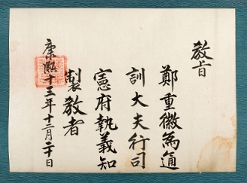 敎旨
鄭重徽爲通
訓大夫行司
憲府執義知
製敎者
康熙十三年十二月二十日